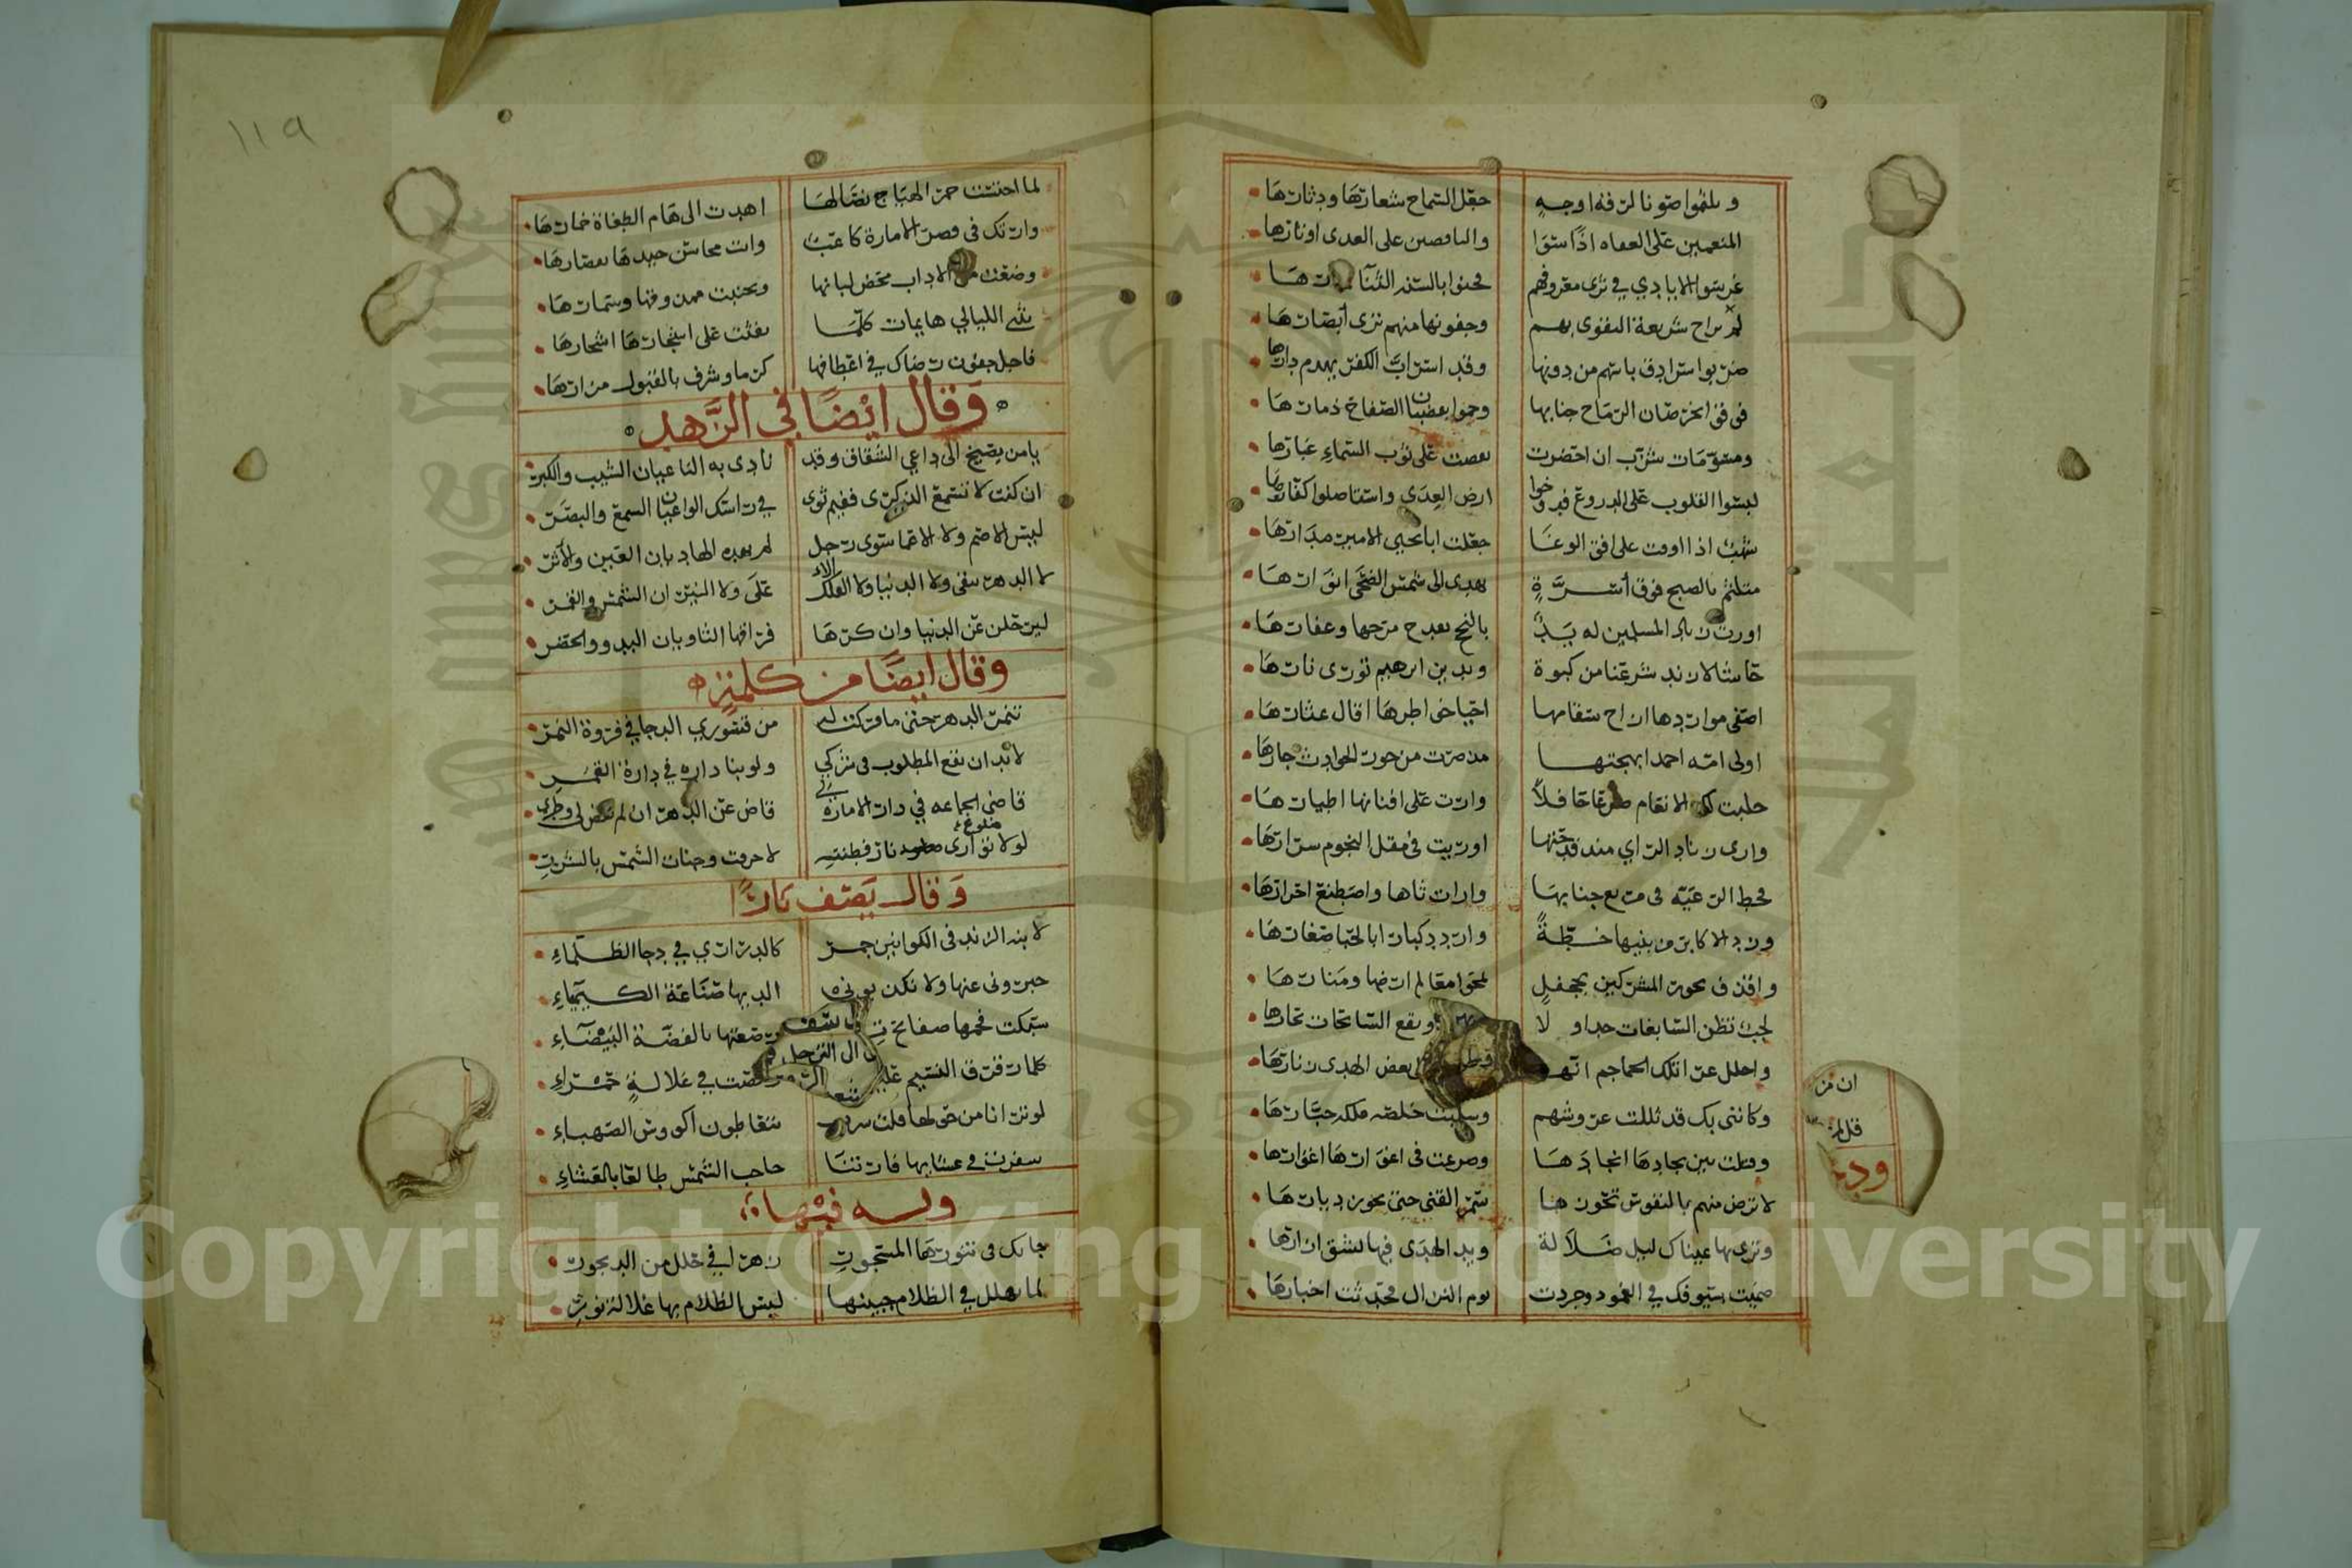 وتلثموا صونا لرفه اوجه جعل السماح شعارها ودثارها
المنعمين على العفاه اذا سقوا والناقصين على العدى اوتارها
غرسوا الايادي في ثرى معروفهم فجنوا بالسنة الثنا
لم براح شريعة التقوى بهم وجفونها منهم ترى ابصارها
ضربوا سرادق باسهم من دونها وقد استراب الكفر يهدم دارها
فوق الخرصان الرماح جنابها وحموا بقضبان الصفاح ذمارها
ومسومات شزب ان احضرت نفضت على ثوب السماء غبارها
لبسوا القلوب على الدروع ارض العدى واستاصلوا كفارها
شهب اذا اوفت على افق الوغا جعلت ابا يحيى الامير مدارها
متلثم بالصبح فوق اسرة يهدى الى شمس الضحى انوارها
المسلمين له يد بالنجح بعد مرخها وعفارها
حاشا لازند شرعنا من كبوة وبدين ابرهيم تورى نارها
اصفى مواردها ازاح سقامها احيا خواطرها اقال عثارها
اولى امة احمد ابهجتها مذ صرت من جور الحوادث جارها
حلبت لك الانعام ضرعا حافلا وارت على افنانها اطيارها
وارى زناد الراي منذ قدحتها اوريت في مقل النجوم سرارها
فحط الرعية في مريع جنابها واصطنع احرارها
ورد الاكابر من بنيها خطة واردد كبارا بالحبا صغارها
واقذف نحور المشركين بجحفل لمحوا معالم ارضها ومنارها
لجب تظن السابغات جداولا ونقع السابحات بخارها
واحلل عرا تلك الجماجم انها بعض الهدى زنارها
وكانني بك قد ثللت عروشهم وسلبت خلصة ملكه جبارها
وقتلت بين نجادها انجادها وصرعت في اغوارها اغوارها
لا ترض منهم بالنفوس تحوزها سمر القنى حتى تحوز ديارها
وترى بها عيناك ليل ضلالة ويد الهدى فيها تشق ازارها
صمتت سيوفك في الغمود وجردت يوم النزال فحدثت اخبارها
ان من
ودي
١١٩
لما احتست خمر الهياج نصالها اهدت الى هام الطغاة خمارها
وارتك في قصر الامارة كاعبا وات محاسن جيدها تقصارها
وضعت من الاداب محض لبانها وتجنبت ممذوقها وسمارها
يثني الليالي هايمات كلما نفثت على اسحارها اسحارها
فاجل جفون رضاك في اعطافها كرما وشرف بالقبول مزارها
وقال ايضا في الزهد
يا من يصيخ الى داعي الشقاق وقد نادى به الناعيان الشيب والكبر
ان كنت لا تسمع الذكرى ففيم ثوى في راسك الواعيان السمع والبصر
ليس الاصم ولا الاعمى سوى رجل لم يهده الهاديان العين والاثر
لا الدهر يبقى ولا الدنيا ولا الفلك الاعلى ولا النيران الشمس والقمر
ليرحلن عن الدنيا وان كرها فراقها الثاويان البدو والحضر
وقال ايضا من كلمته
تنمر الدهر حتى ما فركت له من قسوري الدجا في فروة النمر
لا بد ان نقع المطلوب في شركي ولو بنا داره في دارة القمر
قاضي الجماعه في دار الامارة لي قاض عن الدهر ان لم يقض لي وطري
لولا توارى نار فطنته لاحرقت وجنات الشمس بالشرر
وقال يصف نارا
لابنة الزند في الكوانين جمر كالدراري في دجا الظلماء
خبروني عنها ولا تكذبوني الديها صناعة الكيمياء
سبكت فحمها صفائح تبر رصعتها بالفضة البيضاء
كلما رفرف النسيم عليها رقصت في غلالة حمراء
لو ترانا من حولها قلت شرب يتعاطون اكووس الصهباء
سفرت في عشايها فارتنا حاجب الشمس طالعا بالعشاء
وله فيها
جاتك في تنورها المسجور زهرا في حلل من الديجور
لما تهلل في الظلام جبينها لبس الظلام بها غلالة نور